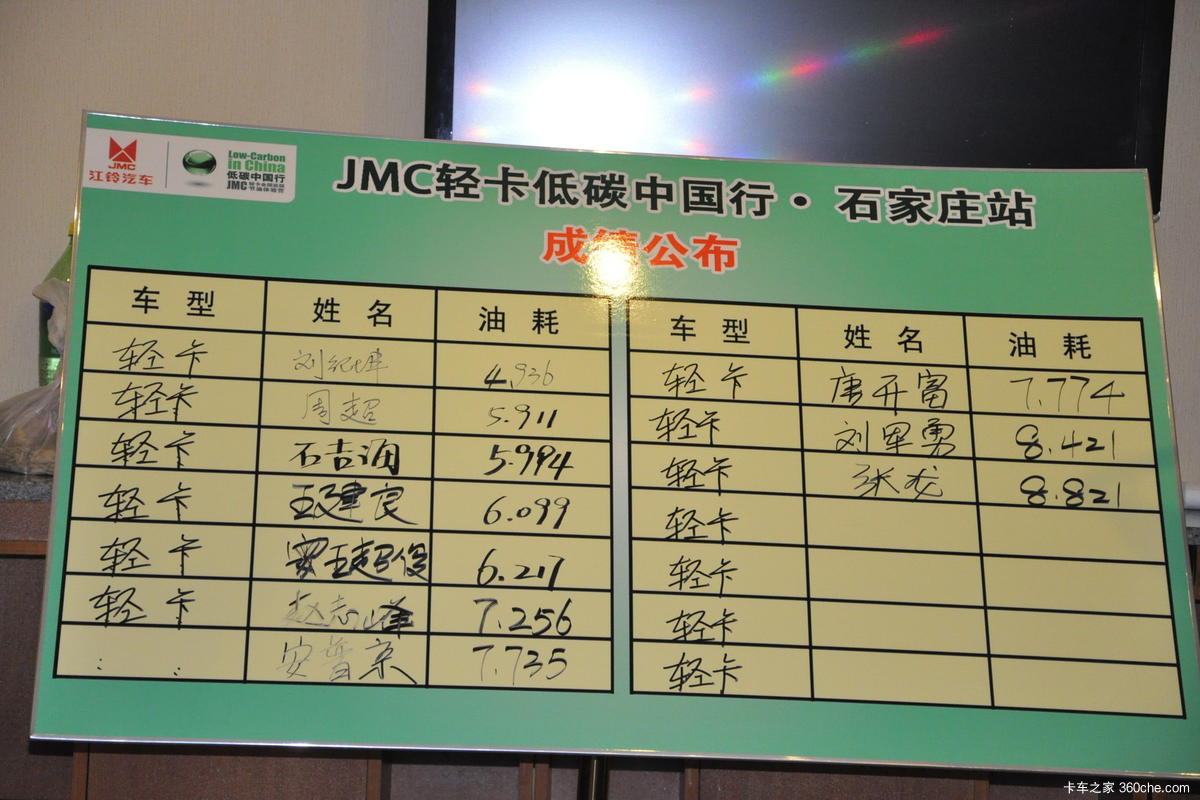 JMC
江铃汽车
Low-Carbon
in China
低碳中国行
JMC
JMC轻卡低碳中国行·石家庄站
成绩公布
车型 姓名 油耗
轻卡 刘纪坤 4.936
轻卡 周超 5.911
轻卡 石吉海 5.994
轻卡 王建良 6.099
轻卡 6.217
轻卡 赵志峰 7.256
: : 安普京 7.735
车型 姓名 油耗
轻卡 唐开富 7.774
轻卡 刘军勇 8.421
轻卡 张龙 8.821
轻卡
轻卡
轻卡
轻卡
卡车之家 360che.com